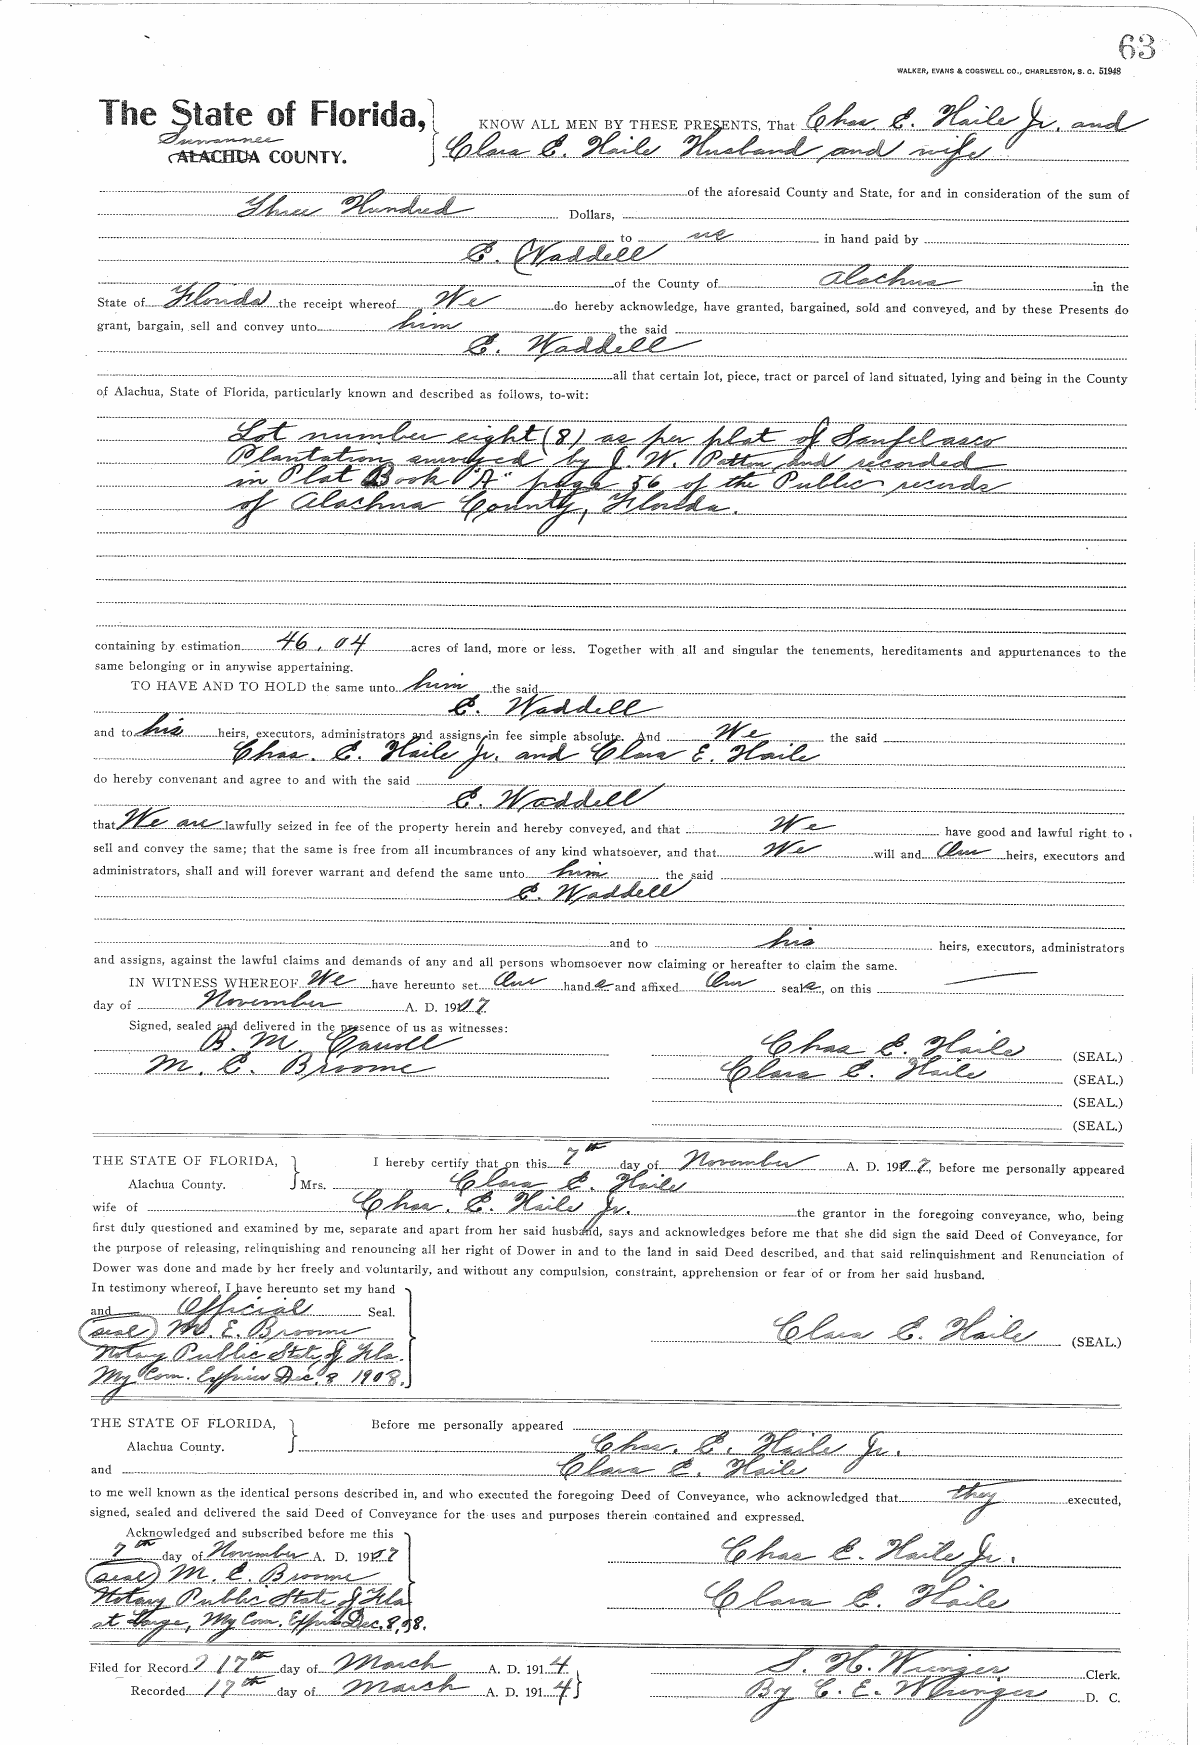 63
WALKER, EVANS & COGSWELL CO., CHARLESTON, S. C. 51948
The State of Florida,
KNOW ALL MEN BY THESE PRESENTS, That Chas. E. Haile Jr. and
Suwannee
ALACHUA COUNTY.
Clara E. Haile Husband and wife
of the aforesaid County and State, for and in consideration of the sum of
Three Hundred Dollars,
to us in hand paid by
E. Waddell
of the County of Alachua in the
State of Florida the receipt whereof We do hereby acknowledge, have granted, bargained, sold and conveyed, and by these Presents do
grant, bargain, sell and convey unto him the said
E. Waddell
all that certain lot, piece, tract or parcel of land situated, lying and being in the County
of Alachua, State of Florida, particularly known and described as follows, to-wit:
Lot number eight (8) as per plat of Sanfelasco
Plantation surveyed by J. W. Patton and recorded
in Plat Book "A" page 56 of the Public records
of Alachua County, Florida.
containing by estimation 46.04 acres of land, more or less. Together with all and singular the tenements, hereditaments and appurtenances to the
same belonging or in anywise appertaining.
TO HAVE AND TO HOLD the same unto him the said
E. Waddell
and to his heirs, executors, administrators and assigns in fee simple absolute. And We the said
Chas. E. Haile Jr. and Clara E. Haile
do hereby convenant and agree to and with the said
E. Waddell
that We are lawfully seized in fee of the property herein and hereby conveyed, and that We have good and lawful right to
sell and convey the same; that the same is free from all incumbrances of any kind whatsoever, and that We will and Our heirs, executors and
administrators, shall and will forever warrant and defend the same unto him the said
E. Waddell
and to his heirs, executors, administrators
and assigns, against the lawful claims and demands of any and all persons whomsoever now claiming or hereafter to claim the same.
IN WITNESS WHEREOF We have hereunto set Our hands and affixed Our seals, on this
day of November A. D. 1907
Signed, sealed and delivered in the presence of us as witnesses:
B. M. Carroll
Chas E. Haile (SEAL.)
M. E. Broome
Clara E. Haile (SEAL.)
(SEAL.)
(SEAL.)
THE STATE OF FLORIDA,
I hereby certify that on this 7th day of November A. D. 1907, before me personally appeared
Alachua County.
Mrs. Clara E. Haile
wife of Chas. E. Haile Jr. the grantor in the foregoing conveyance, who, being
first duly questioned and examined by me, separate and apart from her said husband, says and acknowledges before me that she did sign the said Deed of Conveyance, for
the purpose of releasing, relinquishing and renouncing all her right of Dower in and to the land in said Deed described, and that said relinquishment and Renunciation of
Dower was done and made by her freely and voluntarily, and without any compulsion, constraint, apprehension or fear of or from her said husband.
In testimony whereof, I have hereunto set my hand
and Official Seal.
(seal) M. E. Broome
Clara E. Haile (SEAL.)
Notary Public State of Fla.
My Com. Expires Dec. 8 1908.
THE STATE OF FLORIDA,
Before me personally appeared
Alachua County.
Chas. E. Haile Jr.
and Clara E. Haile
to me well known as the identical persons described in, and who executed the foregoing Deed of Conveyance, who acknowledged that they executed,
signed, sealed and delivered the said Deed of Conveyance for the uses and purposes therein contained and expressed.
Acknowledged and subscribed before me this
7th day of November A. D. 1907
Chas E. Haile Jr.
(seal) M. E. Broome
Notary Public State of Fla
Clara E. Haile
at Large, My Com. Expires Dec. 8, 08.
Filed for Record 17th day of March A. D. 1914
S. H. Wienges Clerk.
Recorded 17th day of March A. D. 1914
By C. E. Wienges D. C.